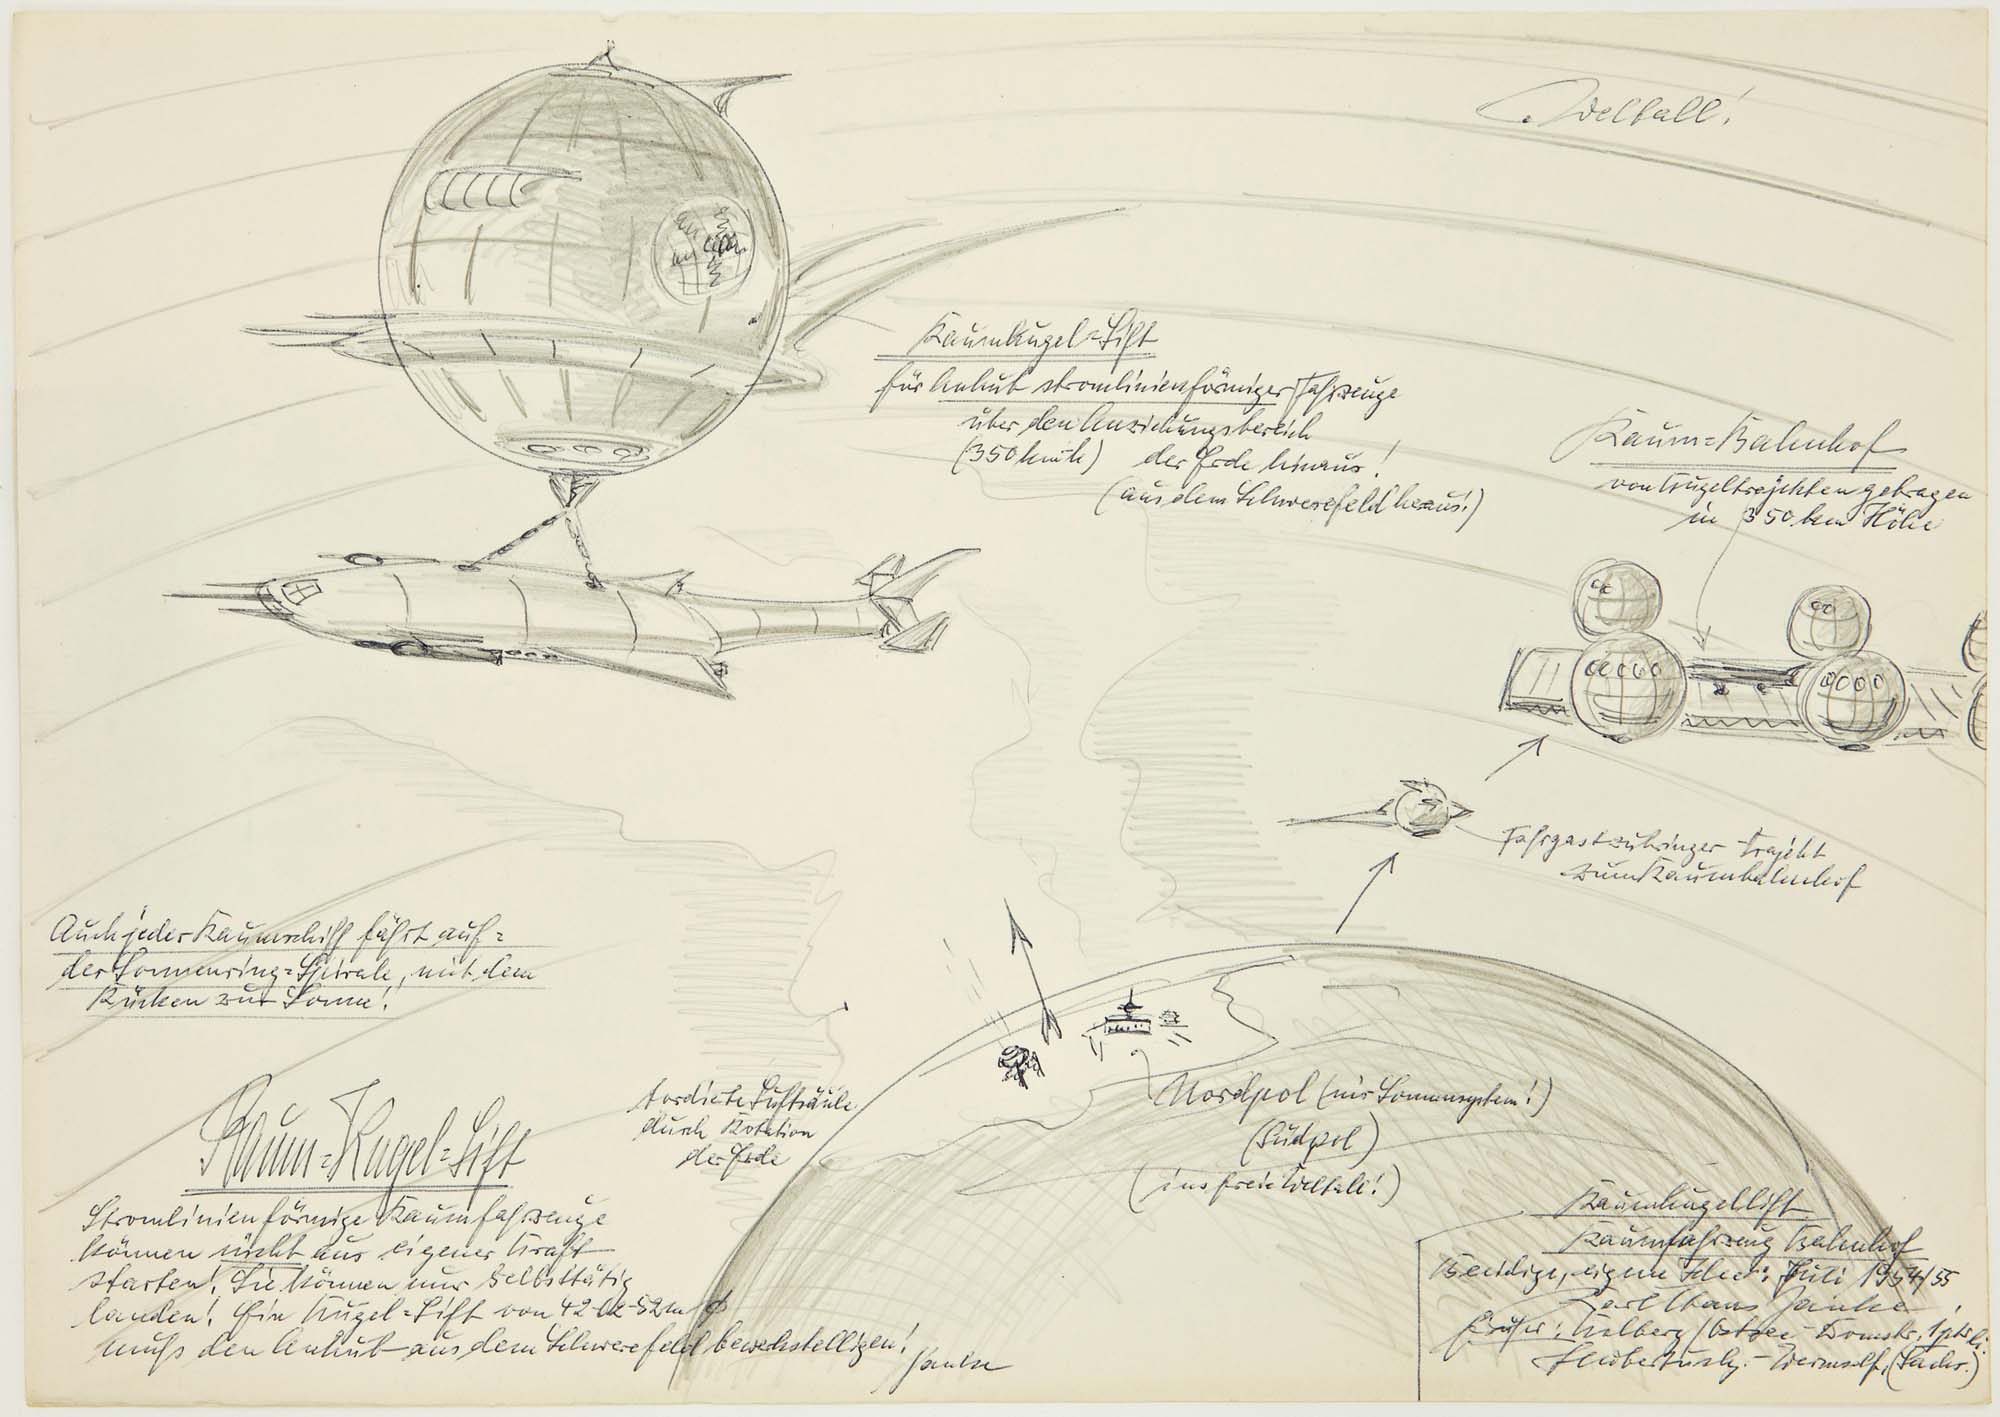 Weltall!
Raumkugel=Lift
für Anhub stromlinienförmiger Fahrzeuge
über den Anziehungsbereich
(350 km/h) der Erde hinaus!
(aus dem Schwerefeld heraus!)
Raum=Bahnhof
von Kugeltrajekten getragen
in 350 km Höhe
Fahrgastzubringer-trajekt
zum Raumbahnhof
Auch jeder Raumschiff fährt auf=
der Sonnenring=Spirale, mit dem
Rücken zur Sonne!
tordierte Luftsäule
durch Rotation
der Erde
Nordpol (ins Sonnensystem!)
(Südpol)
(ins freie Weltall!)
Raum=Kugel=Lift
Stromlinienförmige Raumfahrzeuge
können nicht aus eigener Kraft
starten! Sie können nur selbsttätig
landen! Ein Kugel=Lift von 42-62-82 m ∅
muß den Anhub aus dem Schwerefeld bewerkstelligen!
Janke
Raumkugellift
Raumfahrzeug Bahnhof
eigene Idee: Juli 1954/55
Karl Hans Janke
früher: Kolberg/Ostsee-Domstr. 1
Hubertusbg.-Wermsdf. (Sachs.)